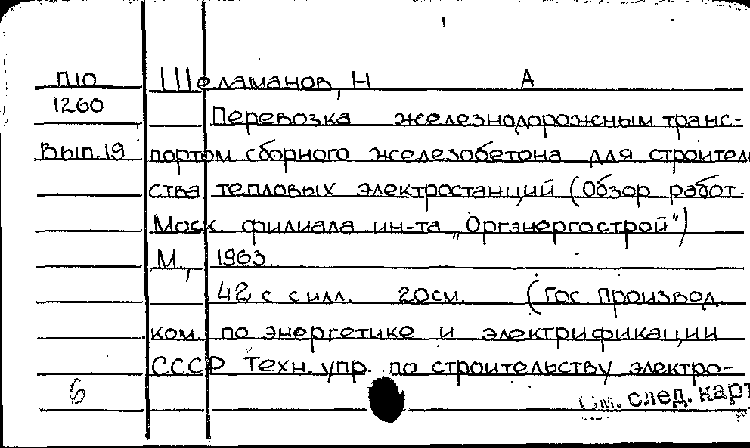 П10 Шеламанов, Н А
1260 Перевозка железнодорожным транс-
Вып.19 портом сборного железобетона для строитель
ства тепловых электростанций (Обзор работ
Моск филиала ин-та „Оргэнергострой")
М, 1963
42 с с илл. 20см. (Гос производ.
ком. по энергетике и электрификации
СССР Техн. упр. по строительству электро-
6 См. след. карт